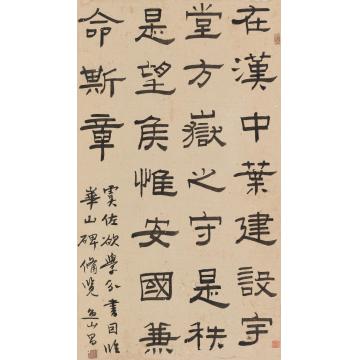 在漢中葉建設宇
堂方嶽之守是秩
是望矦惟安國兼
命斯章
佐欲學分書因臨
華山碑備覽